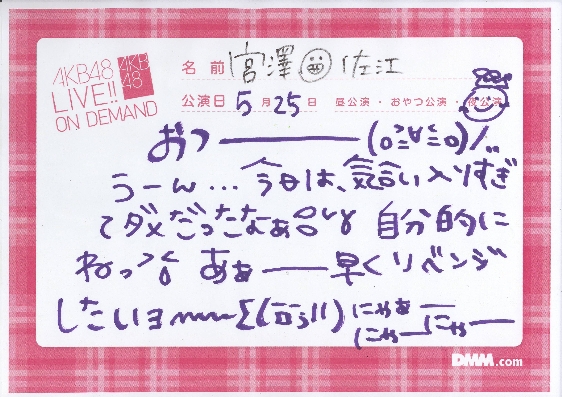 AKB48
LIVE!!
ON DEMAND
AKB
48
名前 宮澤 佐江
公演日 5月25日 昼公演・おやつ公演・夜公演
おつ――――(o≧∀≦o)ノ
うーん…今日は、気合い入りすぎ
てダメだったなぁ 自分的に
ねっ あぁ――早くリベンジ
したいョ
にゃぁ――
にゃ――にゃ――
DMM.com